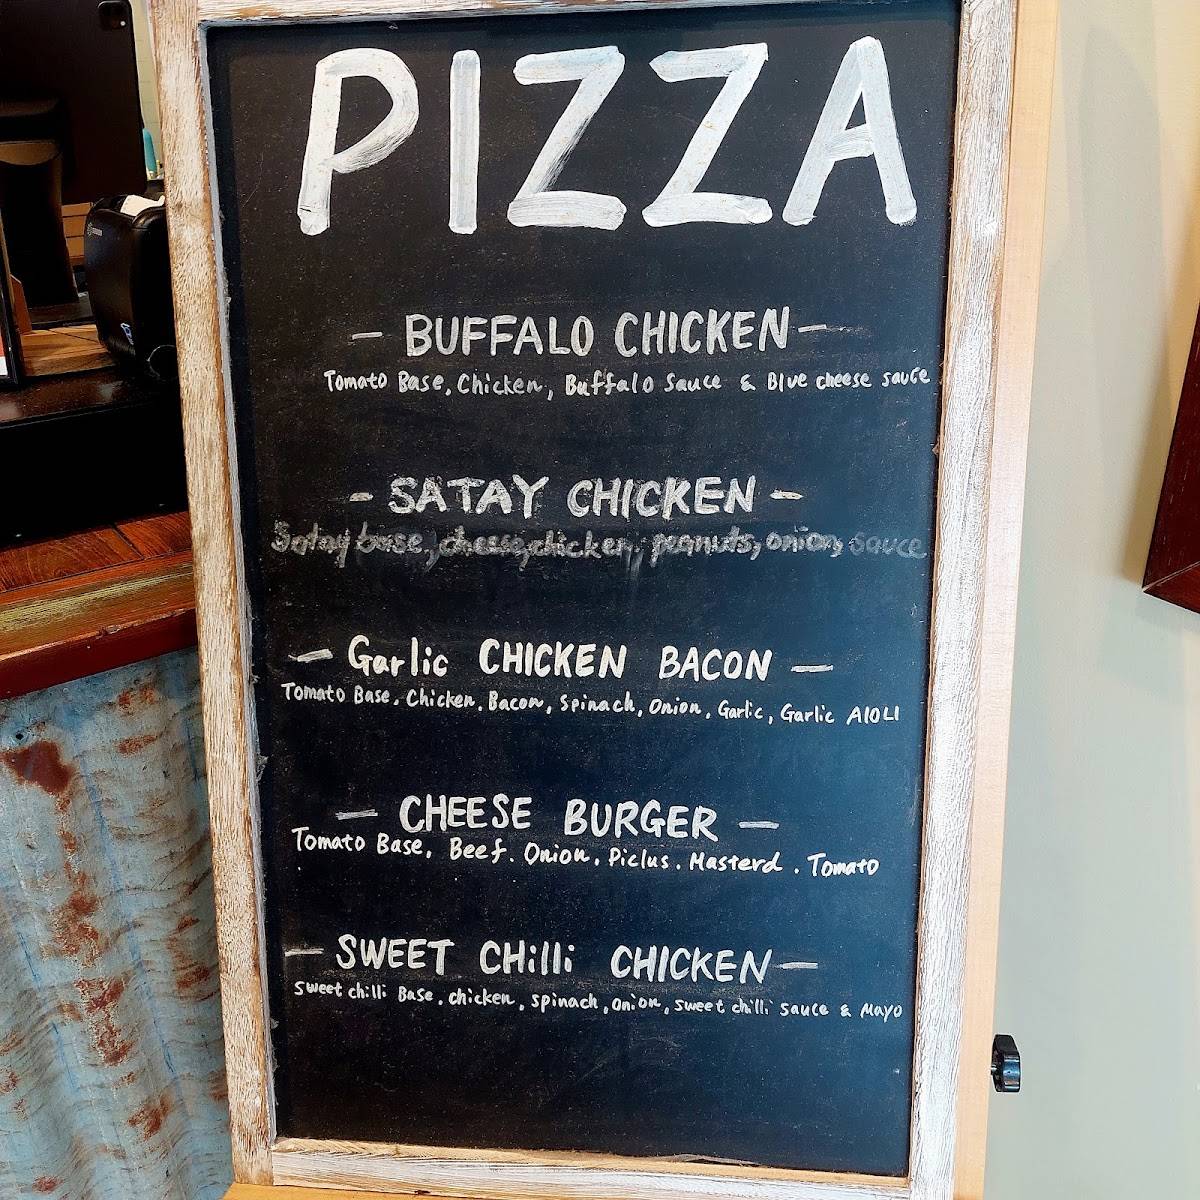 PIZZA
- BUFFALO CHICKEN -
Tomato Base, Chicken, Buffalo Sauce & Blue cheese sauce
- SATAY CHICKEN -
Satay base, cheese, chicken, peanuts, onion, sauce
- Garlic CHICKEN BACON -
Tomato Base, Chicken, Bacon, Spinach, Onion, Garlic, Garlic AIOLI
- CHEESE BURGER -
Tomato Base, Beef. Onion. Piclus. Masterd. Tomato
- SWEET CHilli CHICKEN -
Sweet chilli Base, chicken, spinach, onion, sweet chilli sauce & Mayo